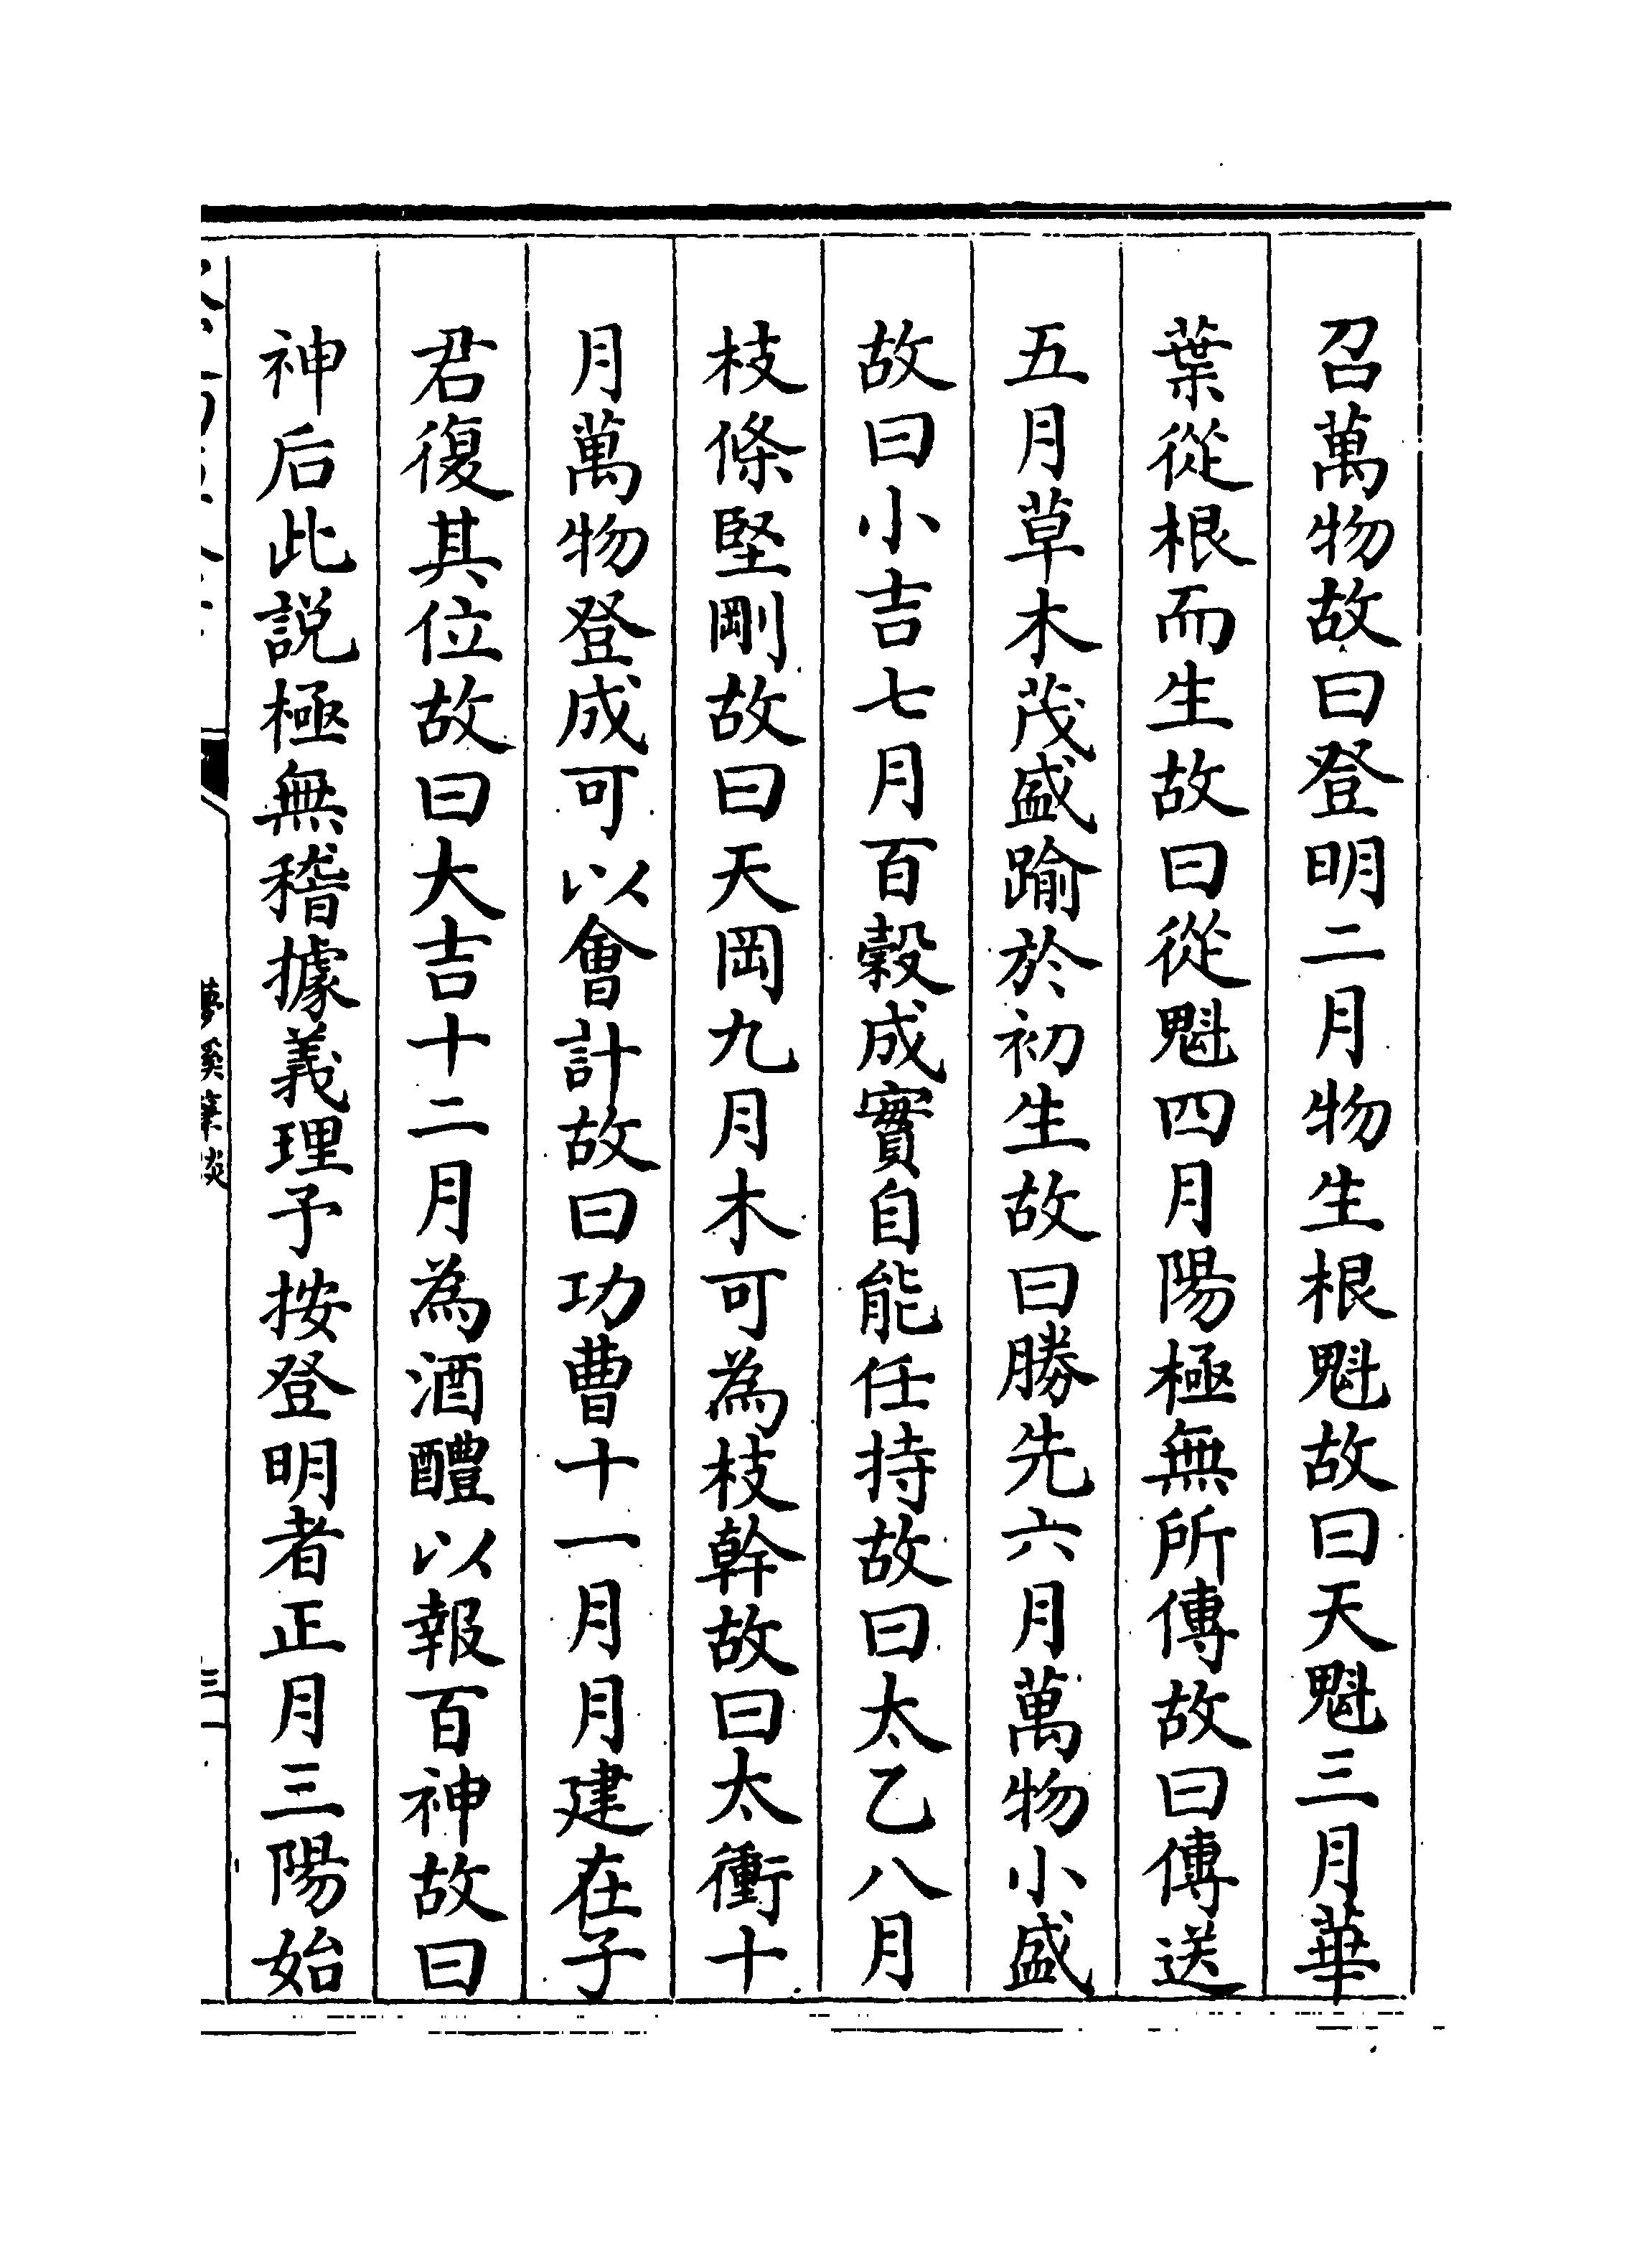 召萬物故曰登明二月物生根魁故曰天魁三月華
葉從根而生故曰從魁四月陽極無所傳故曰傳送
五月草木茂盛踰於初生故曰勝先六月萬物小盛
故曰小吉七月百穀成實自能任持故曰太乙八月
枝條堅剛故曰天岡九月木可為枝幹故曰太衝十
月萬物登成可以會計故曰功曹十一月月建在子
君復其位故曰大吉十二月為酒醴以報百神故曰
神后此説極無稽據義理予按登明者正月三陽始
夢溪筆談